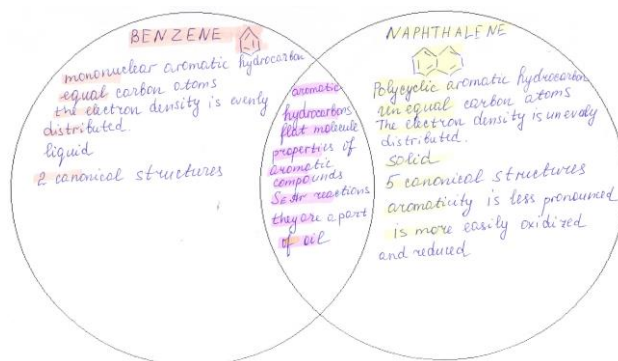 BENZENE
mononuclear aromatic hydrocarbon
equal carbon atoms
the electron density is evenly
distributed.
liquid
2 canonical structures
aromatic
hydrocarbons
flat molecule
properties of
aromatic
compounds
SEAr reactions
they are a part
of oil
NAPHTHALENE
Polycyclic aromatic hydrocarbon
un equal carbon atoms
The electron density is unevenly
distributed.
solid
5 canonical structures
aromaticity is less pronounced
is more easily oxidized
and reduced